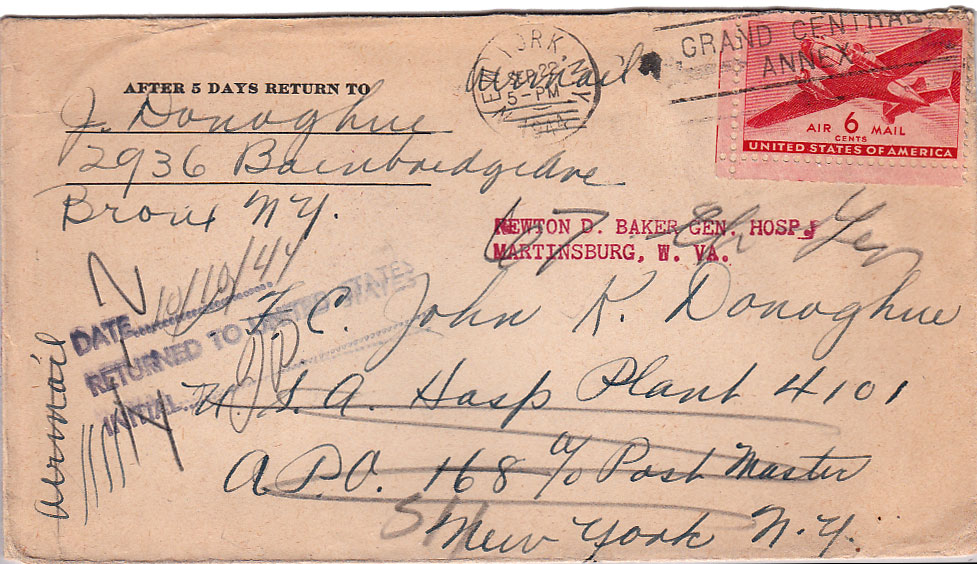 AFTER 5 DAYS RETURN TO
J. Donoghue
2936 Bainbridge Ave
Bronx N.Y.
NEW YORK, N.Y.
SEP 22
5-PM
1944
Airmail
GRAND CENTRAL
ANNEX
AIR 6 MAIL
CENTS
UNITED STATES OF AMERICA
NEWTON D. BAKER GEN. HOSP.
MARTINSBURG, W. VA.
67
DATE 10/10/44
RETURNED TO UNITED STATES
INITIAL
Airmail
P.F.C. John K. Donoghue
U.S.A. Hosp Plant 4101
A.P.O. 168 c/o Post Master
New York N.Y.